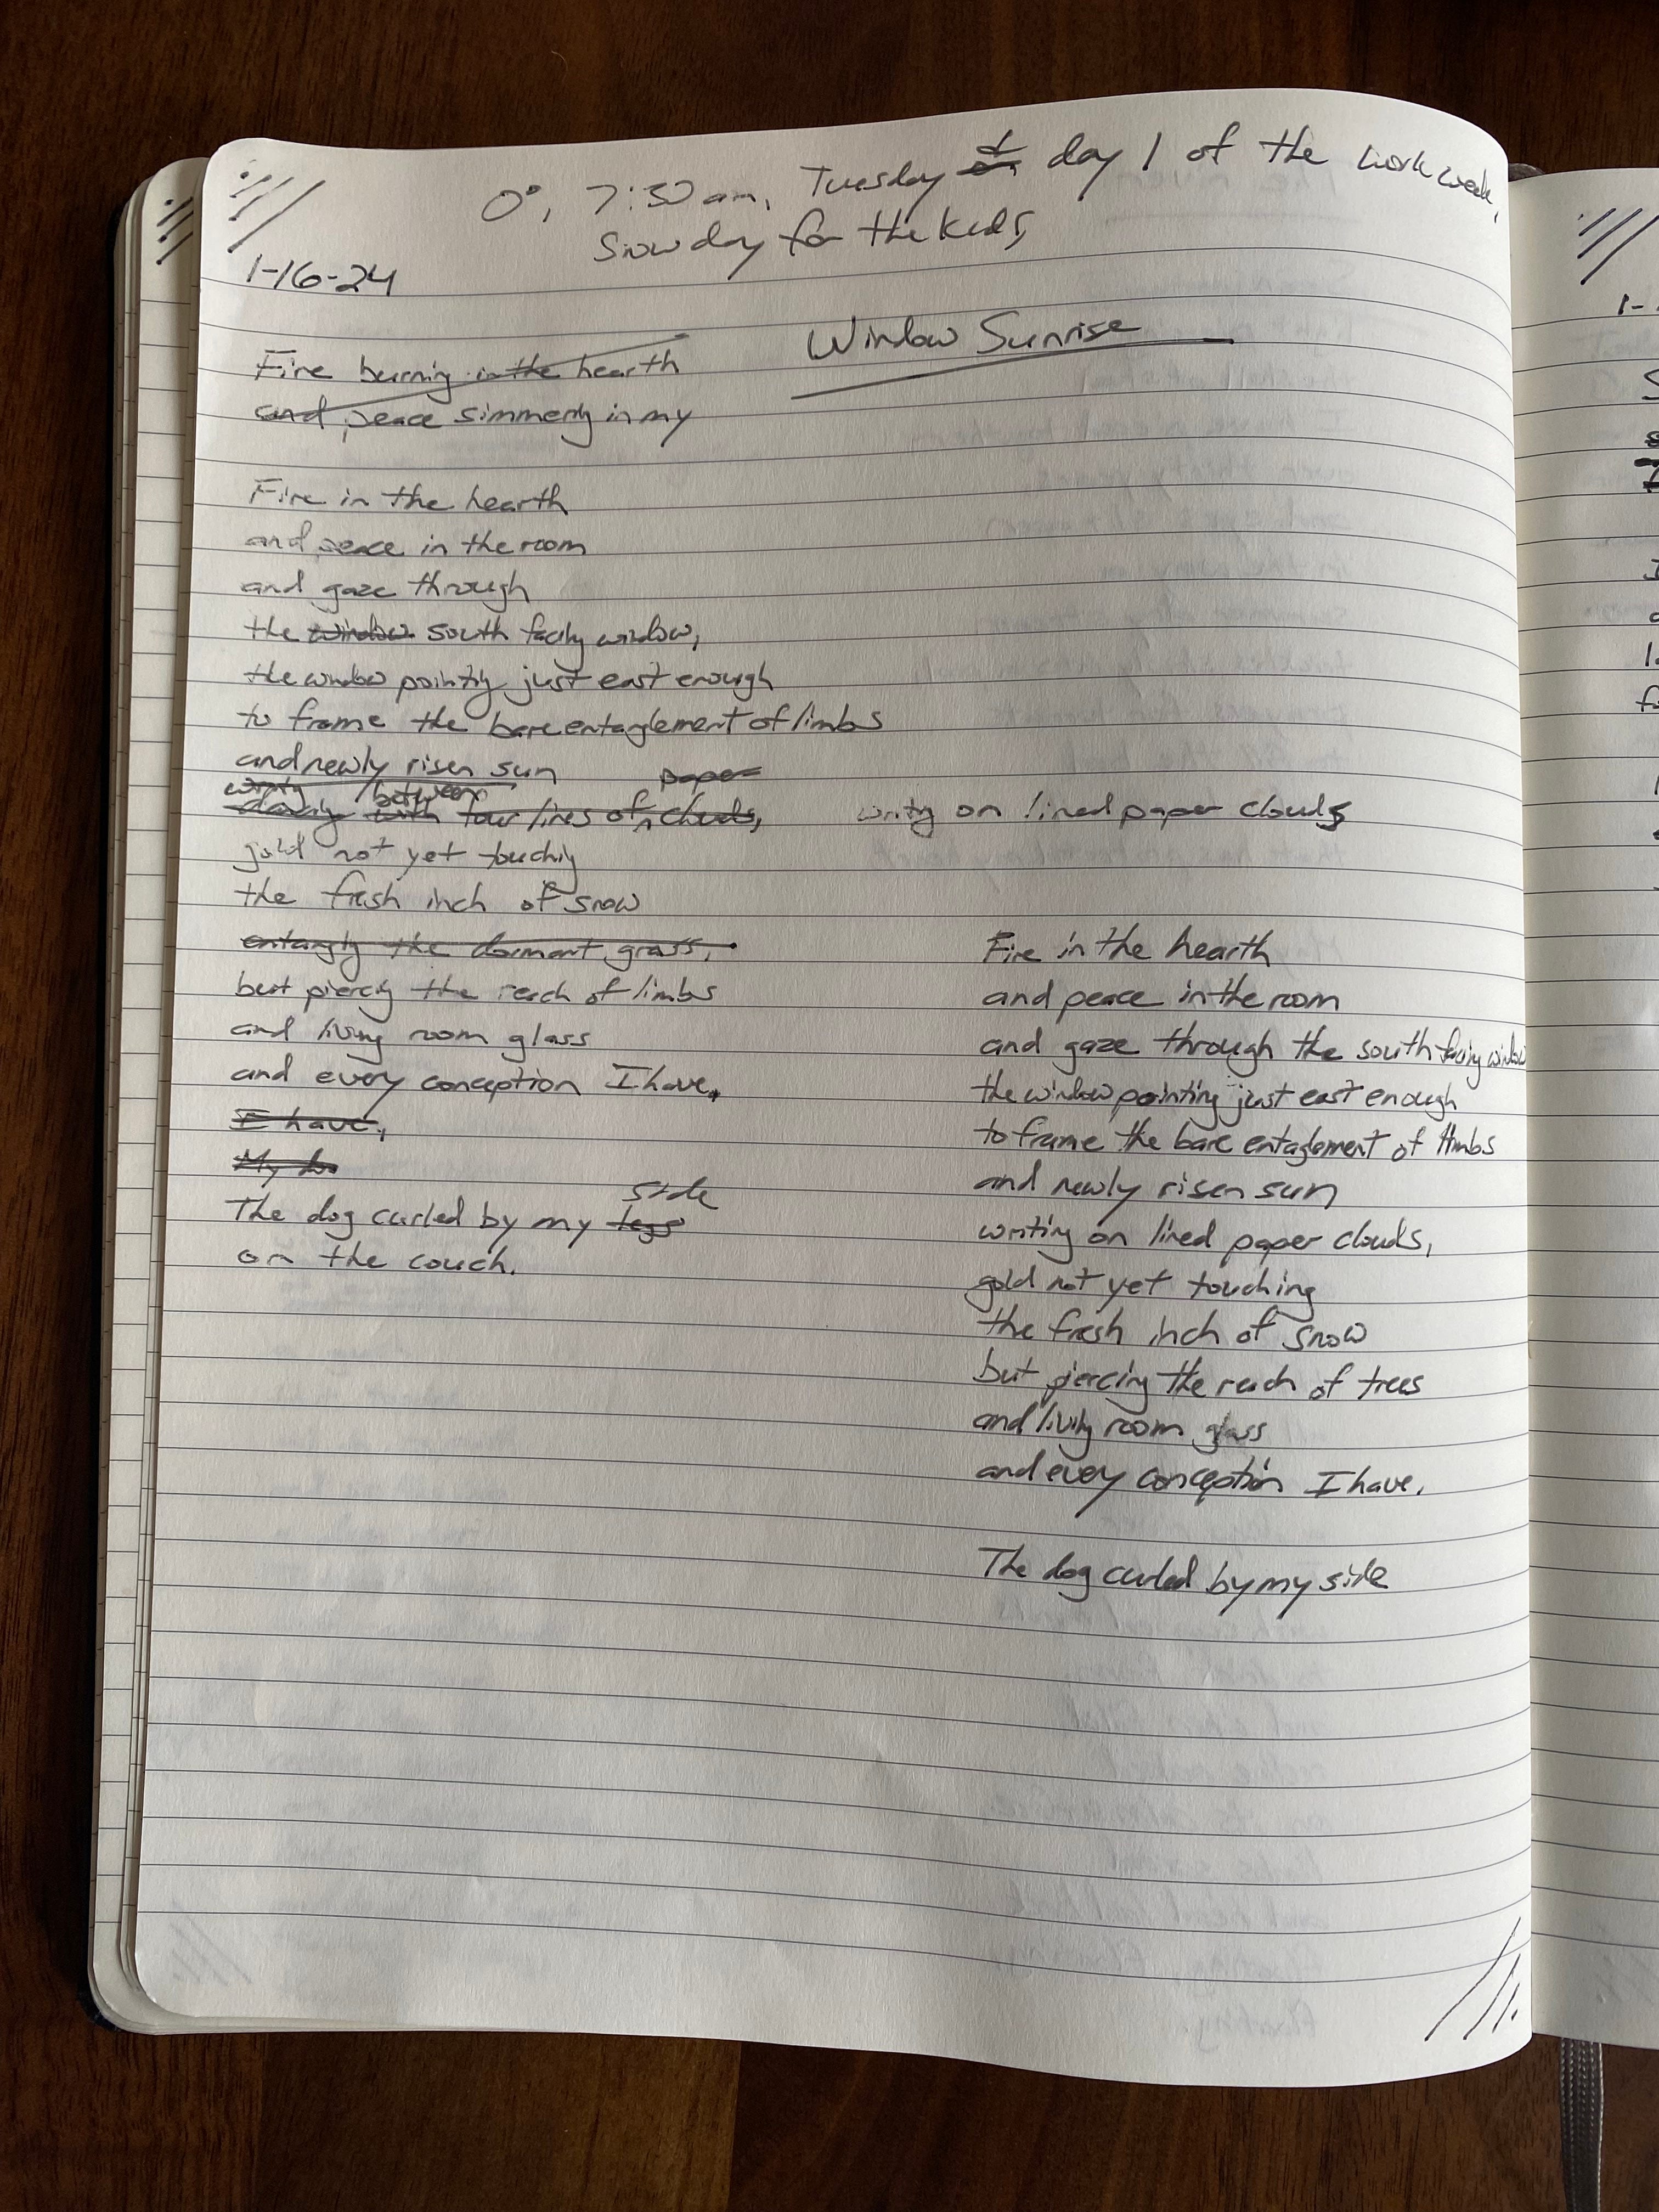 0°, 7:30 am, Tuesday day 1 of the work week,
Snow day for the kids,
1-16-24
Window Sunrise
Fire burning in the hearth
and peace simmering in my
Fire in the hearth
and peace in the room
and gaze through
the window south facing window,
the window pointing just east enough
to frame the bare entanglement of limbs
and newly risen sun
writing between paper
dancing with four lines of clouds,
writing on lined paper clouds,
gold not yet touching
the fresh inch of snow
entangling the dormant grass,
but piercing the reach of limbs
and living room glass
and every conception I have.
I have,
My
side
The dog curled by my legs
on the couch.
Fire in the hearth
and peace in the room
and gaze through the south facing window
the window pointing just east enough
to frame the bare entaglement of limbs
and newly risen sun
writing on lined paper clouds,
gold not yet touching
the fresh inch of snow
but piercing the reach of trees
and living room glass
and every conception I have.
The dog curled by my side